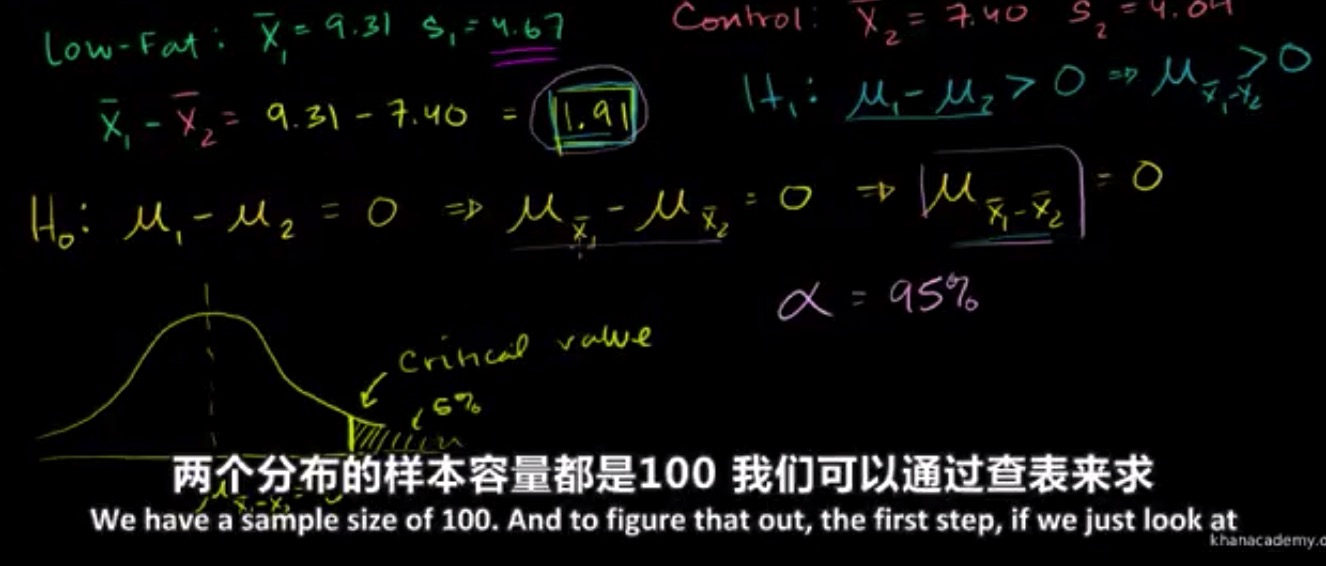 Low-Fat: x̄₁ = 9.31 s₁ = 4.67
Control: x̄₂ = 7.40 s₂ = 4.04
x̄₁ - x̄₂ = 9.31 - 7.40 = 1.91
H₁: μ₁ - μ₂ > 0 ⇒ μ_x̄₁-x̄₂ > 0
H₀: μ₁ - μ₂ = 0 ⇒ μ_x̄₁ - μ_x̄₂ = 0 ⇒ μ_x̄₁-x̄₂ = 0
α = 95%
Critical value
5%
两个分布的样本容量都是100 我们可以通过查表来求
We have a sample size of 100. And to figure that out, the first step, if we just look at